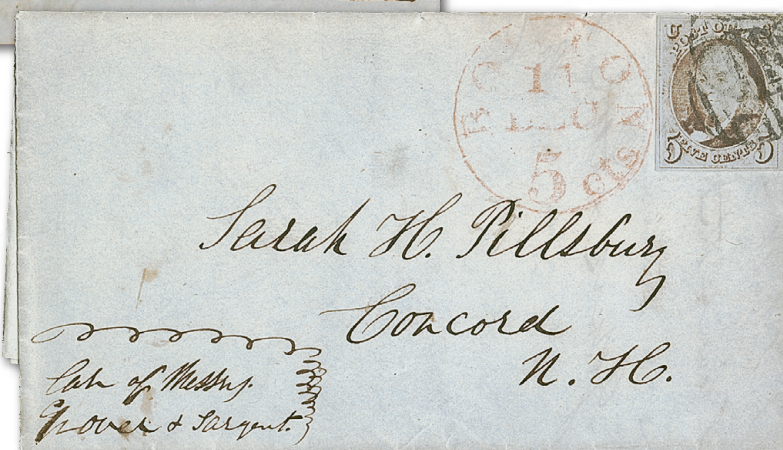 BOSTON
11
DEC
5 cts
U S
POST OFFICE
FIVE CENTS
5 5
Sarah H. Pillsbury
Concord
N. H.
Care of Messrs.
Grover & Sargent.